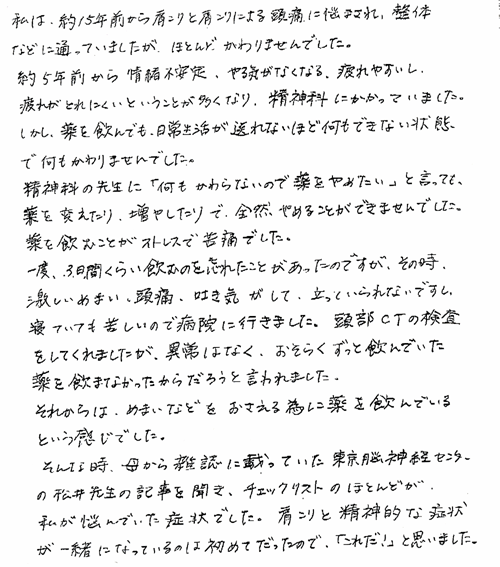 私は、約15年前から肩こりと肩こりによる頭痛に悩まされ、整体
などに通っていましたが、ほとんどかわりませんでした。
約5年前から情緒不安定、やる気がなくなる、疲れやすいし、
疲れがとれにくいということが多くなり、精神科にかかっていました。
しかし、薬を飲んでも、日常生活が送れないほど何もできない状態
で何もかわりませんでした。
精神科の先生に「何もかわらないので薬をやめたい」と言っても、
薬を変えたり、増やしたりで、全然やめることができませんでした。
薬を飲むことがストレスで苦痛でした。
一度、3日間くらい飲むのを忘れたことがあったのですが、その時、
激しいめまい、頭痛、吐き気がして、立っていられないですし、
寝ていても苦しいので病院に行きました。頭部CTの検査
をしてくれましたが、異常はなく、おそらくずっと飲んでいた
薬を飲まなかったからだろうと言われました。
それからは、めまいなどをおさえる為に薬を飲んでいる
という感じでした。
そんな時、母から雑誌に載っていた東京脳神経センター
の松井先生の記事を聞き、チェックリストのほとんどが、
私が悩んでいた症状でした。肩こりと精神的な症状
が一緒になっているのは初めてだったので、「これだ!」と思いました。